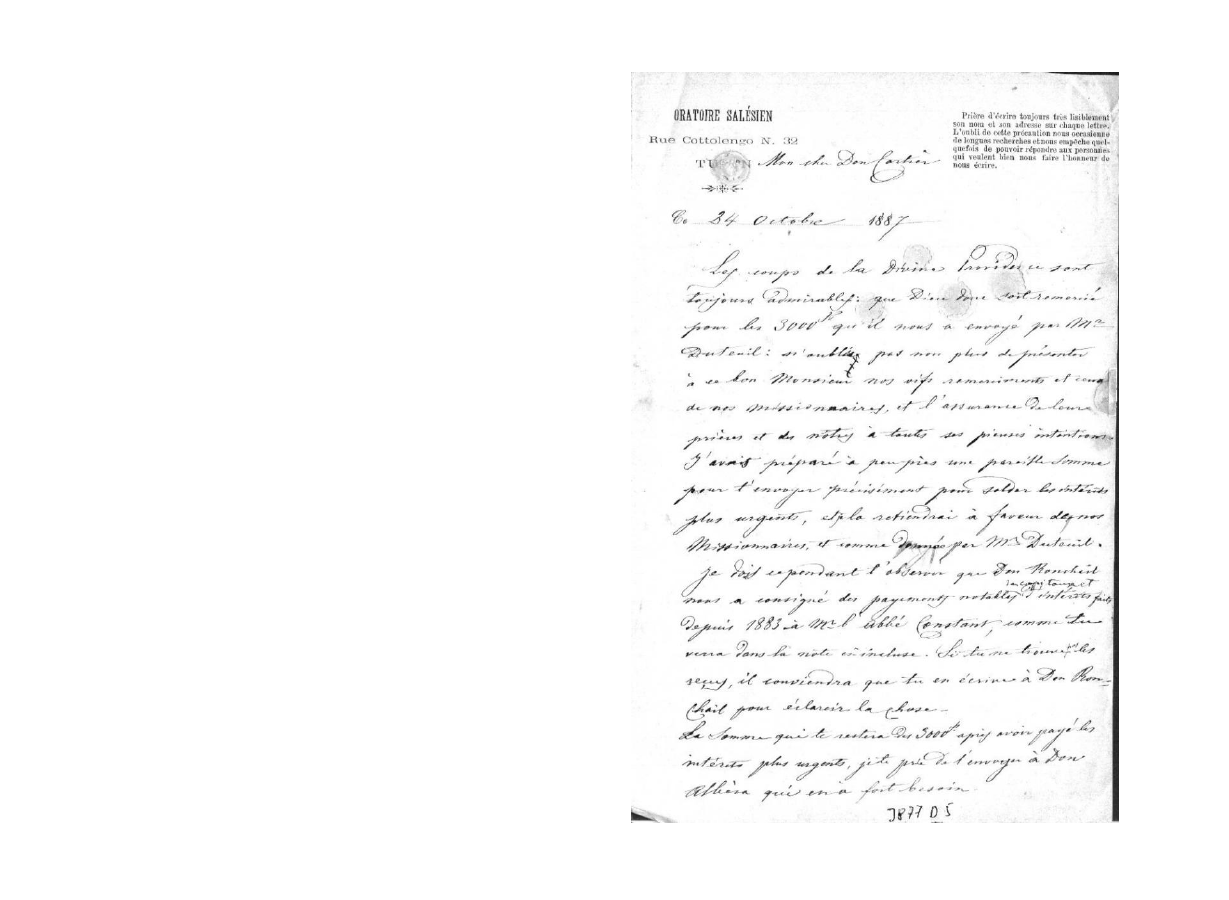 ORATOIRE SALÉSIEN
Rue Cottolengo N. 32
TURIN
Prière d'écrire toujours très lisiblement
son nom et son adresse sur chaque lettre.
L'oubli de cette précaution nous occasionne
de longues recherches et nous empêche quel-
quefois de pouvoir répondre aux personnes
qui veulent bien nous faire l'honneur de
nous écrire.
Mon cher Don Cartier
Ce 24 Octobre 1887
Les coups de la Divine Providence sont
toujours admirables: que Dieu donc soit remercié
pour les 3000 fr qu'il nous a envoyé par Mr
Duteuil: n'oublie pas non plus de présenter
à ce bon Monsieur nos vifs remerciments et ceux
de nos missionnaires, et l'assurance de leurs
prières et des notres à toutes ses pieuses intentions
J'avais préparé à peu près une pareille somme
pour t'envoyer précisément pour solder les intérêts
plus urgents, et la retiendrai à faveur de nos
Missionnaires, et comme donnée par Mr Duteuil.
Je dois cependant t'observer que Don Ronchail
nous a consigné des payements notables d'intérêts faits
depuis 1883 à Mr l'abbé Constant, comme tu
verra dans la note ci incluse. Si tu ne trouve pas les
reçus, il conviendra que tu en écrive à Don Ron-
chail pour éclarcir la chose.
La Somme qui te restera des 3000 fr après avoir payé les
intérêts plus urgents, je te prie de l'envoyer à Don
Albéra qui en a fort besoin
J877 D 5